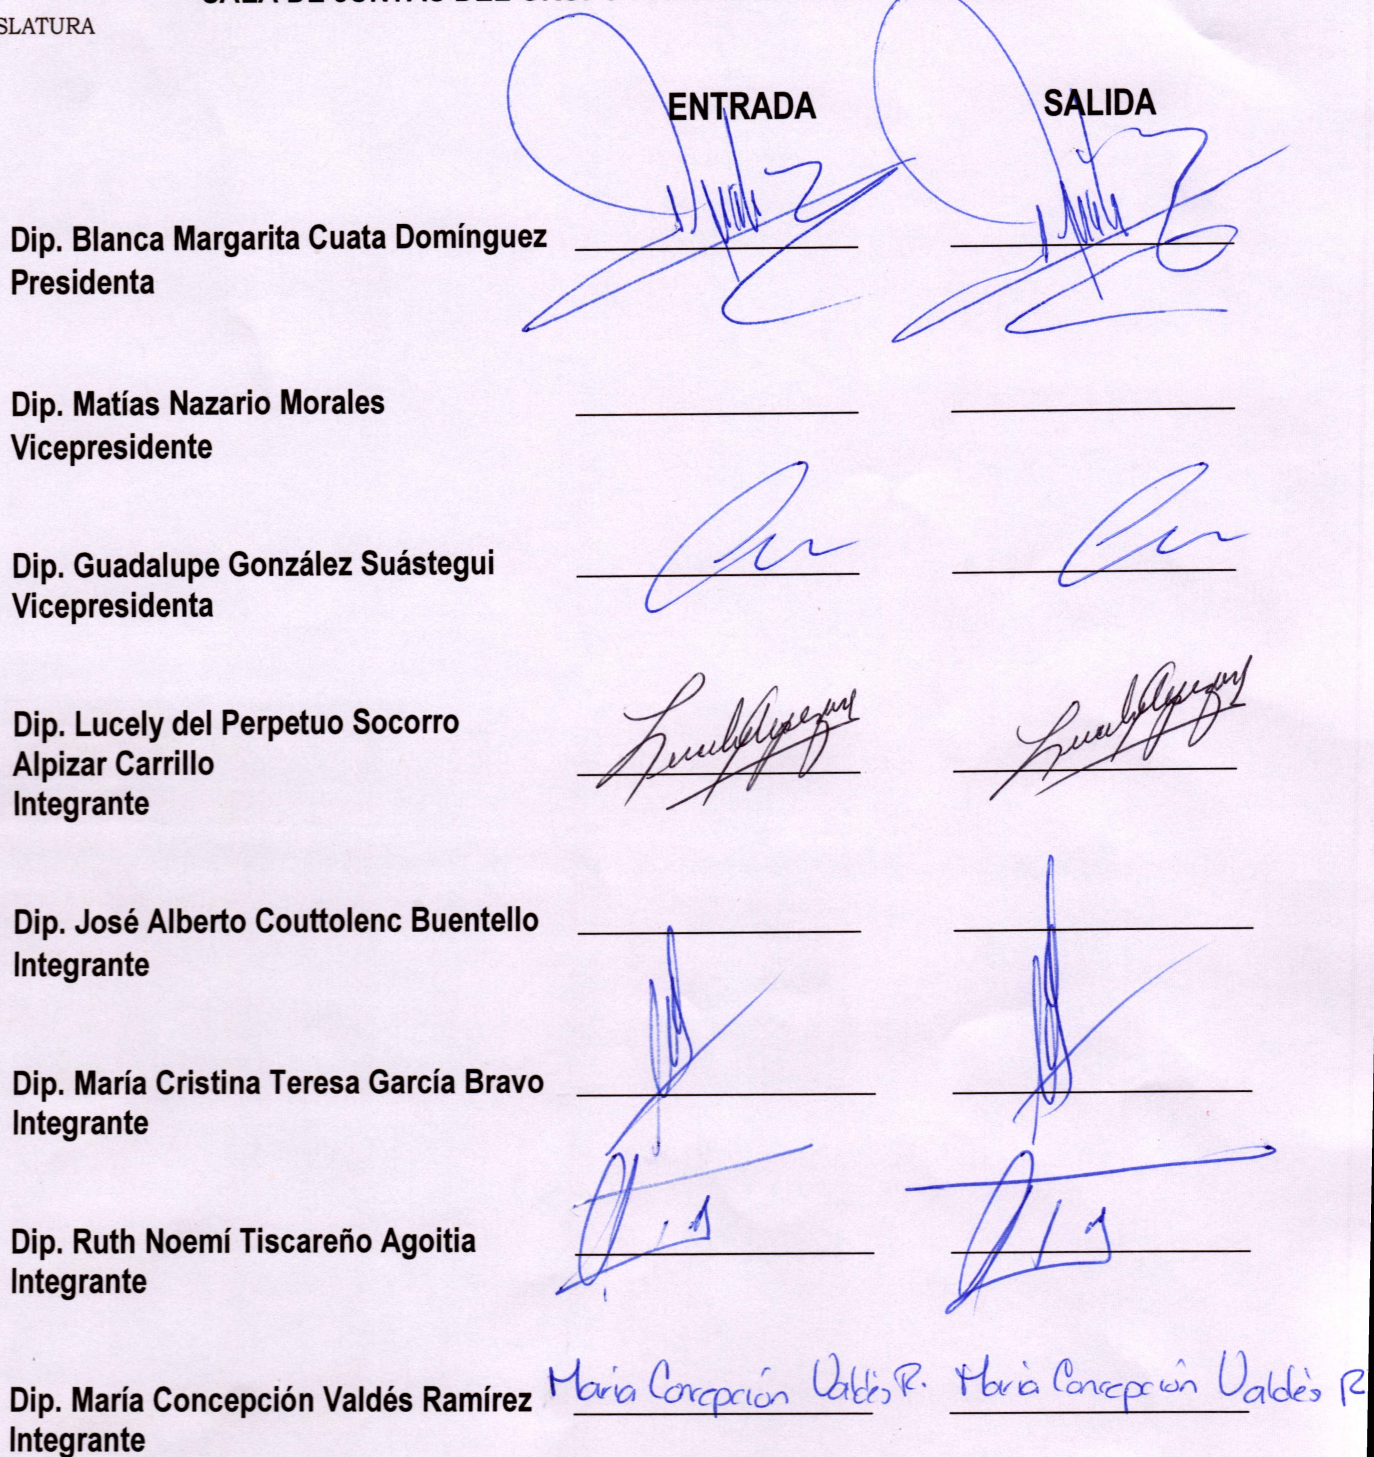 SLATURA
ENTRADA SALIDA
Dip. Blanca Margarita Cuata Domínguez
Presidenta
Dip. Matías Nazario Morales
Vicepresidente
Dip. Guadalupe González Suástegui
Vicepresidenta
Dip. Lucely del Perpetuo Socorro
Alpizar Carrillo
Integrante
Dip. José Alberto Couttolenc Buentello
Integrante
Dip. María Cristina Teresa García Bravo
Integrante
Dip. Ruth Noemí Tiscareño Agoitia
Integrante
Dip. María Concepción Valdés Ramírez Maria Concepción Valdés R. Maria Concepción Valdés R
Integrante